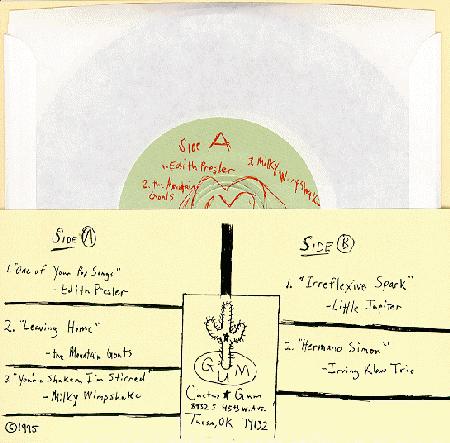 Side A
1. Edith Presler
2. the Mountain
Goats
3. Milky
SIDE A
1. "One of Your Pop Songs"
- Edith Presler
2. "Leaving Home"
- the Mountain Goats
3 "You're Shaken, I'm Stirred"
- Milky Wimpshake
©1995
GUM
Cactus ★ Gum
Tulsa, OK 74132
SIDE B
1. "Irreflexive Spark"
- Little Jupiter
2. "Hermano Simon"
- Irving Klaw Trio